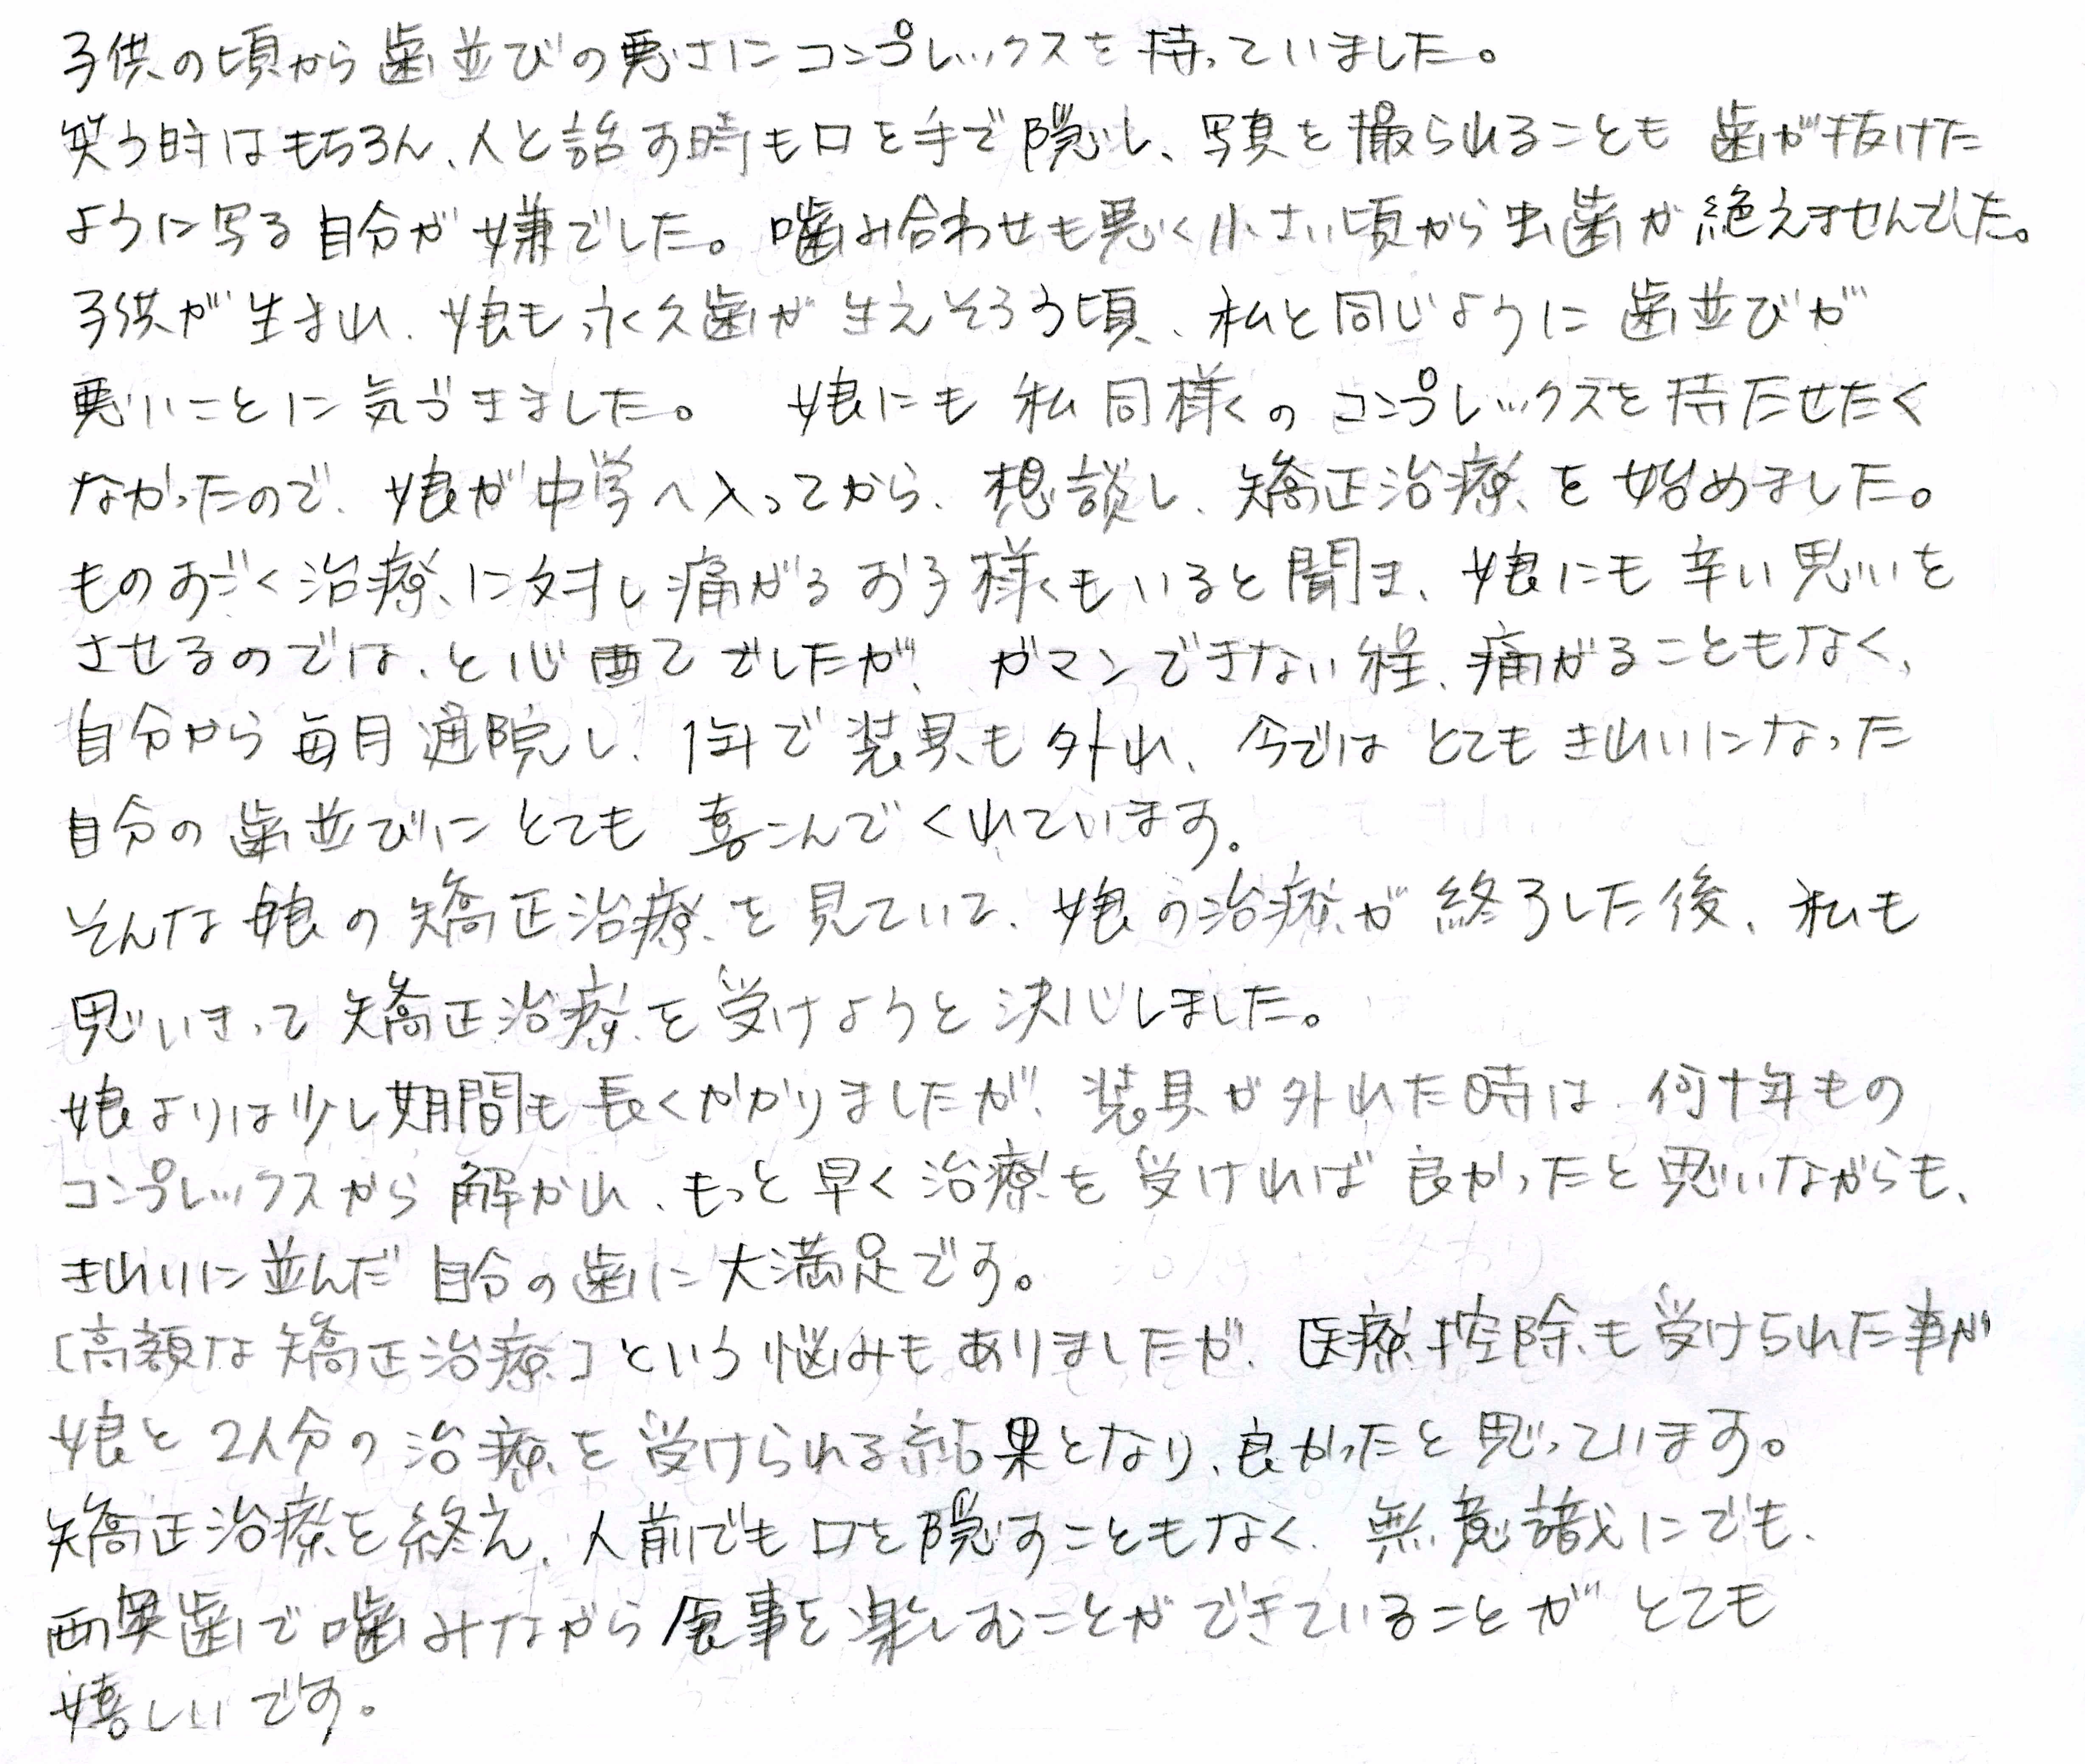 子供の頃から歯並びの悪さにコンプレックスを持っていました。
笑う時はもちろん、人と話す時も口を手で隠し、写真を撮られることも歯が抜けた
ように写る自分が嫌でした。噛み合わせも悪く小さい頃から虫歯が絶えませんでした。
子供が生まれ、娘も永久歯が生えそろう頃、私と同じように歯並びが
悪いことに気づきました。 娘にも私同様のコンプレックスを持たせたく
なかったので、娘が中学へ入ってから、相談し、矯正治療を始めました。
ものすごく治療に対し痛がるお子様もいると聞き、娘にも辛い思いを
させるのでは、と心配でしたが、ガマンできない程、痛がることもなく、
自分から毎月通院し、1年で装具も外れ、今ではとてもきれいになった
自分の歯並びにとても喜こんでくれています。
そんな娘の矯正治療を見ていて、娘の治療が終了した後、私も
思いきって矯正治療を受けようと決心しました。
娘よりは少し期間も長くかかりましたが、装具が外れた時は、何十年もの
コンプレックスから解かれ、もっと早く治療を受ければ良かったと思いながらも、
きれいに並んだ自分の歯に大満足です。
「高額な矯正治療」という悩みもありましたが、医療控除も受けられた事が
娘と2人分の治療を受けられる結果となり、良かったと思っています。
矯正治療を終え、人前でも口を隠すこともなく、無意識にでも、
両奥歯で噛みながら食事を楽しむことができていることがとても
嬉しいです。